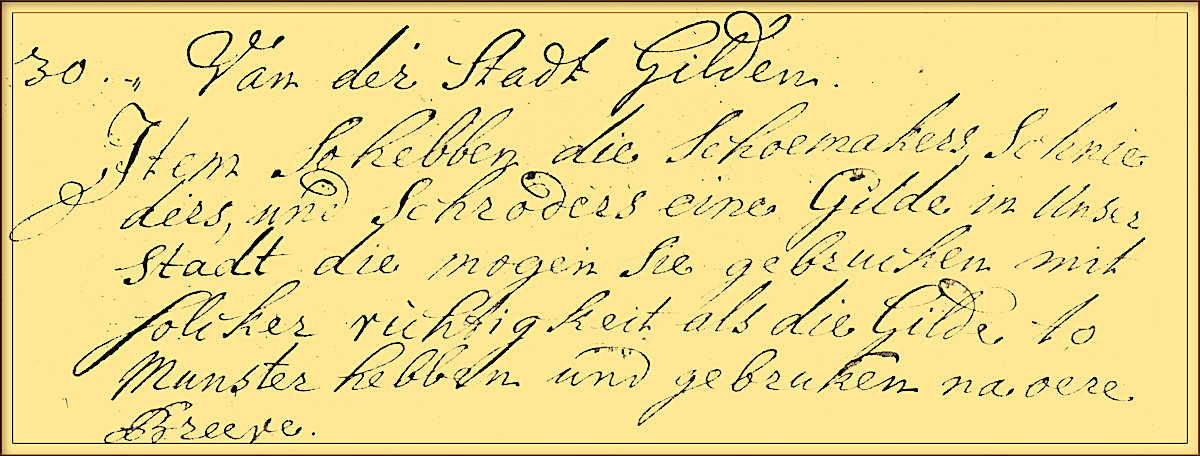 30. „ Van der Stadt Gilden.
Item so hebben die Schoemakers, Schnie
ders, und Schröders eine Gilde in Unser
Stadt die mogen sie gebrucken mit
solicker richtigkeit als die Gilde to
Munster hebben und gebruken na oere
Breeve.